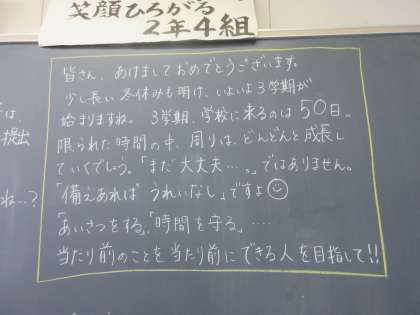 笑顔ひろがる
2年4組
皆さん、あけましておめでとうございます。
少し長い冬休みも明け、いよいよ3学期が
始まりますね。3学期、学校に来るのは50日。
限られた時間の中、周りは、どんどんと成長し
ていくでしょう。「まだ大丈夫…。」ではありません。
「備えあれば うれいなし」ですよ☺
「あいさつをする」「時間を守る」……
当たり前のことを当たり前にできる人を目指して!!
は、
提出
ね…?